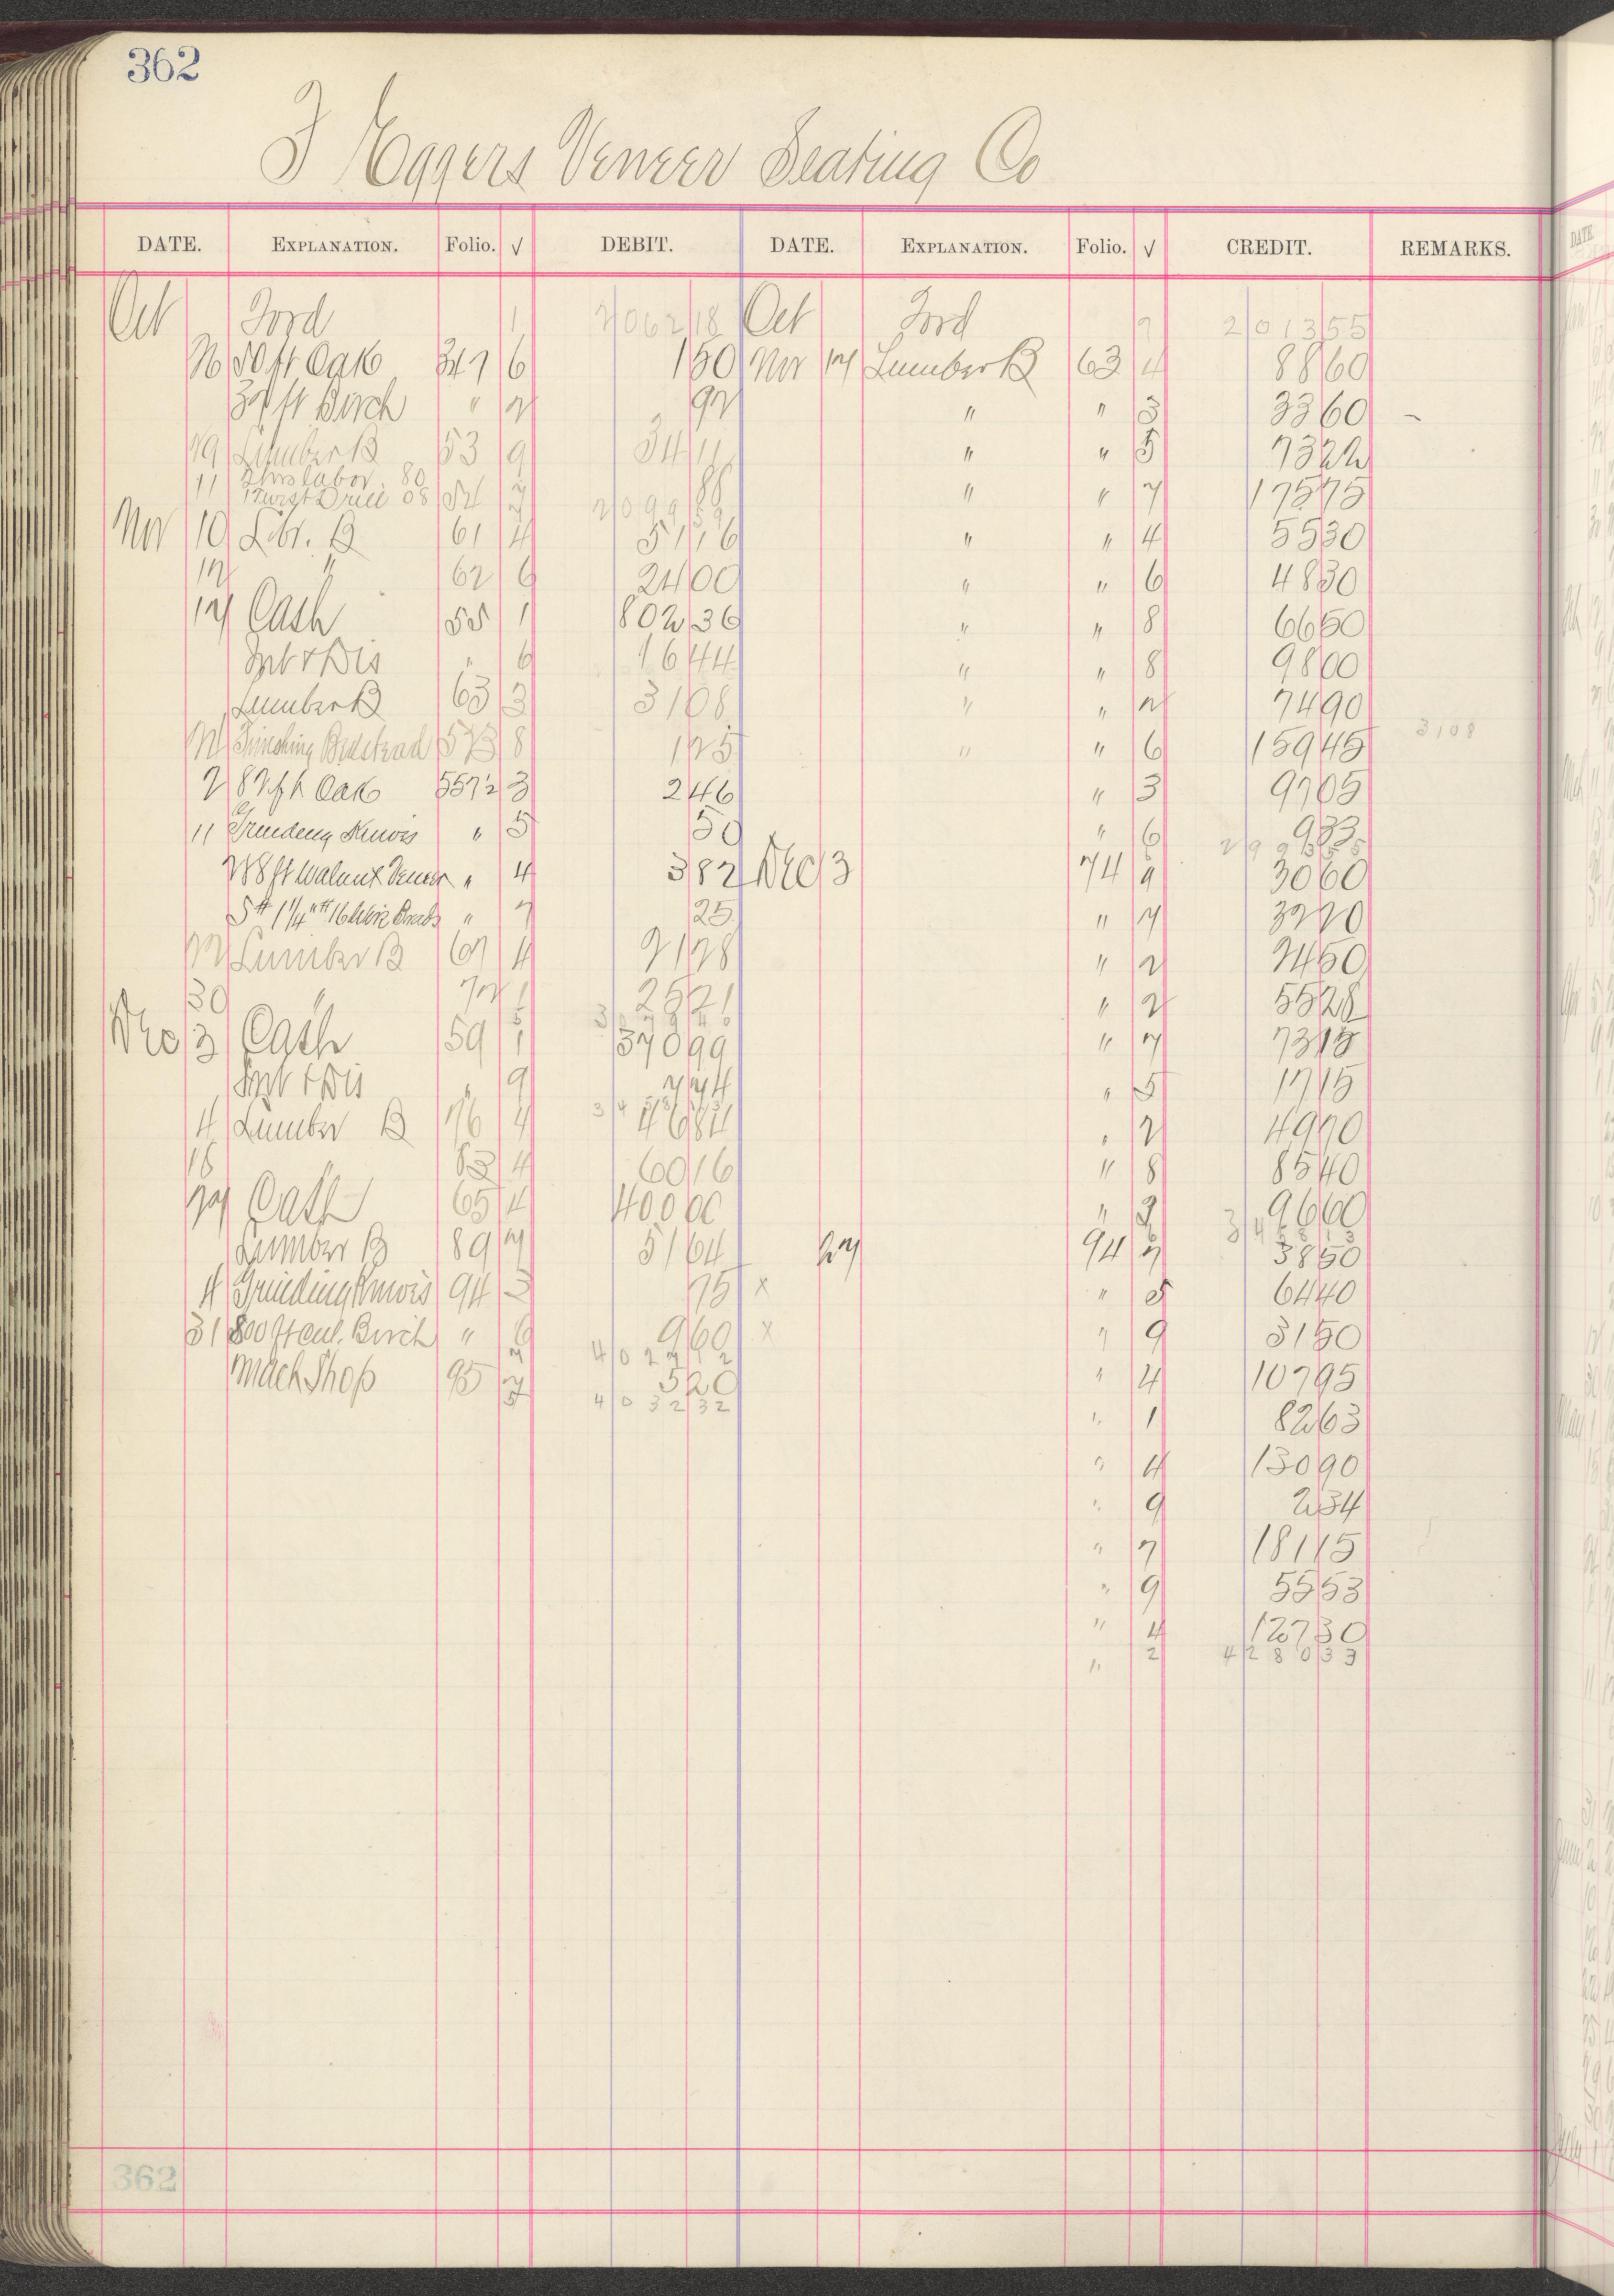 362
F Eggers Veneer Seating Co
DATE. EXPLANATION. Folio. √ DEBIT. DATE. EXPLANATION. Folio. √ CREDIT. REMARKS.
Oct Ford 1 2062 18 Oct Ford 2 01 3 55
26 50 ft Oak 347 6 1 50 Nov 17 Lumber B 63 4 88 60
32 ft Birch " 2 92 " " 3 33 60
29 Lumber B 53 9 34 11 " " 5 73 22
11 2 hrs labor 80
1 Twist Drill 08 54 7 88 " " 7 175 75
2 0 9 9 5 9
Nov 10 Lbr. B 61 4 51 16 " " 4 55 30
12 " 62 6 24 00 " " 6 48 30
17 Cash 55 1 802 36 " " 8 66 50
Int & Dis " 6 16 44 " " 8 98 00
Lumber B 63 3 31 08 " " 2 74 90
3108
Finishing Bedstead 8 1 25 " " 6 159 45
2 82 ft Oak 557½ 3 2 46 " 3 97 05
11 Grinding Knives " 5 50 " 6 9 83
 288 ft Walnut Veneer " 4 3 82 Dec 3 74 3060
5# 1¼" #16 Wire Brads " 7 25 " 7 32 20
22 Lumber B 67 4 21 28 " 2 24 50
30 " 72 1 25 21 " 2 55 28
Dec 3 Cash 59 1 370 99 " 7 73 15
Int & Dis " 9 7 74 " 5 17 15
4 Lumber B 76 4 46 84 " 2 49 70
16 83 4 60 16 " 8 85 40
27 Cash 65 4 400 00 " 96 60
Lumber B 89 7 51 64 27 94 7 38 50
4 Grinding Knives 94 3 75 x " 5 64 40
31 800 ft cul. Birch " 6 9 60 x " 9 31 50
Mach Shop 95 7 5 20 " 4 107 95
4 0 3 2 3 2
" 1 82 63
" 4 130 90
" 9 2 34
" 7 181 15
" 9 55 53
" 4 127 30
" 2 4 2 8 0 3 3
362